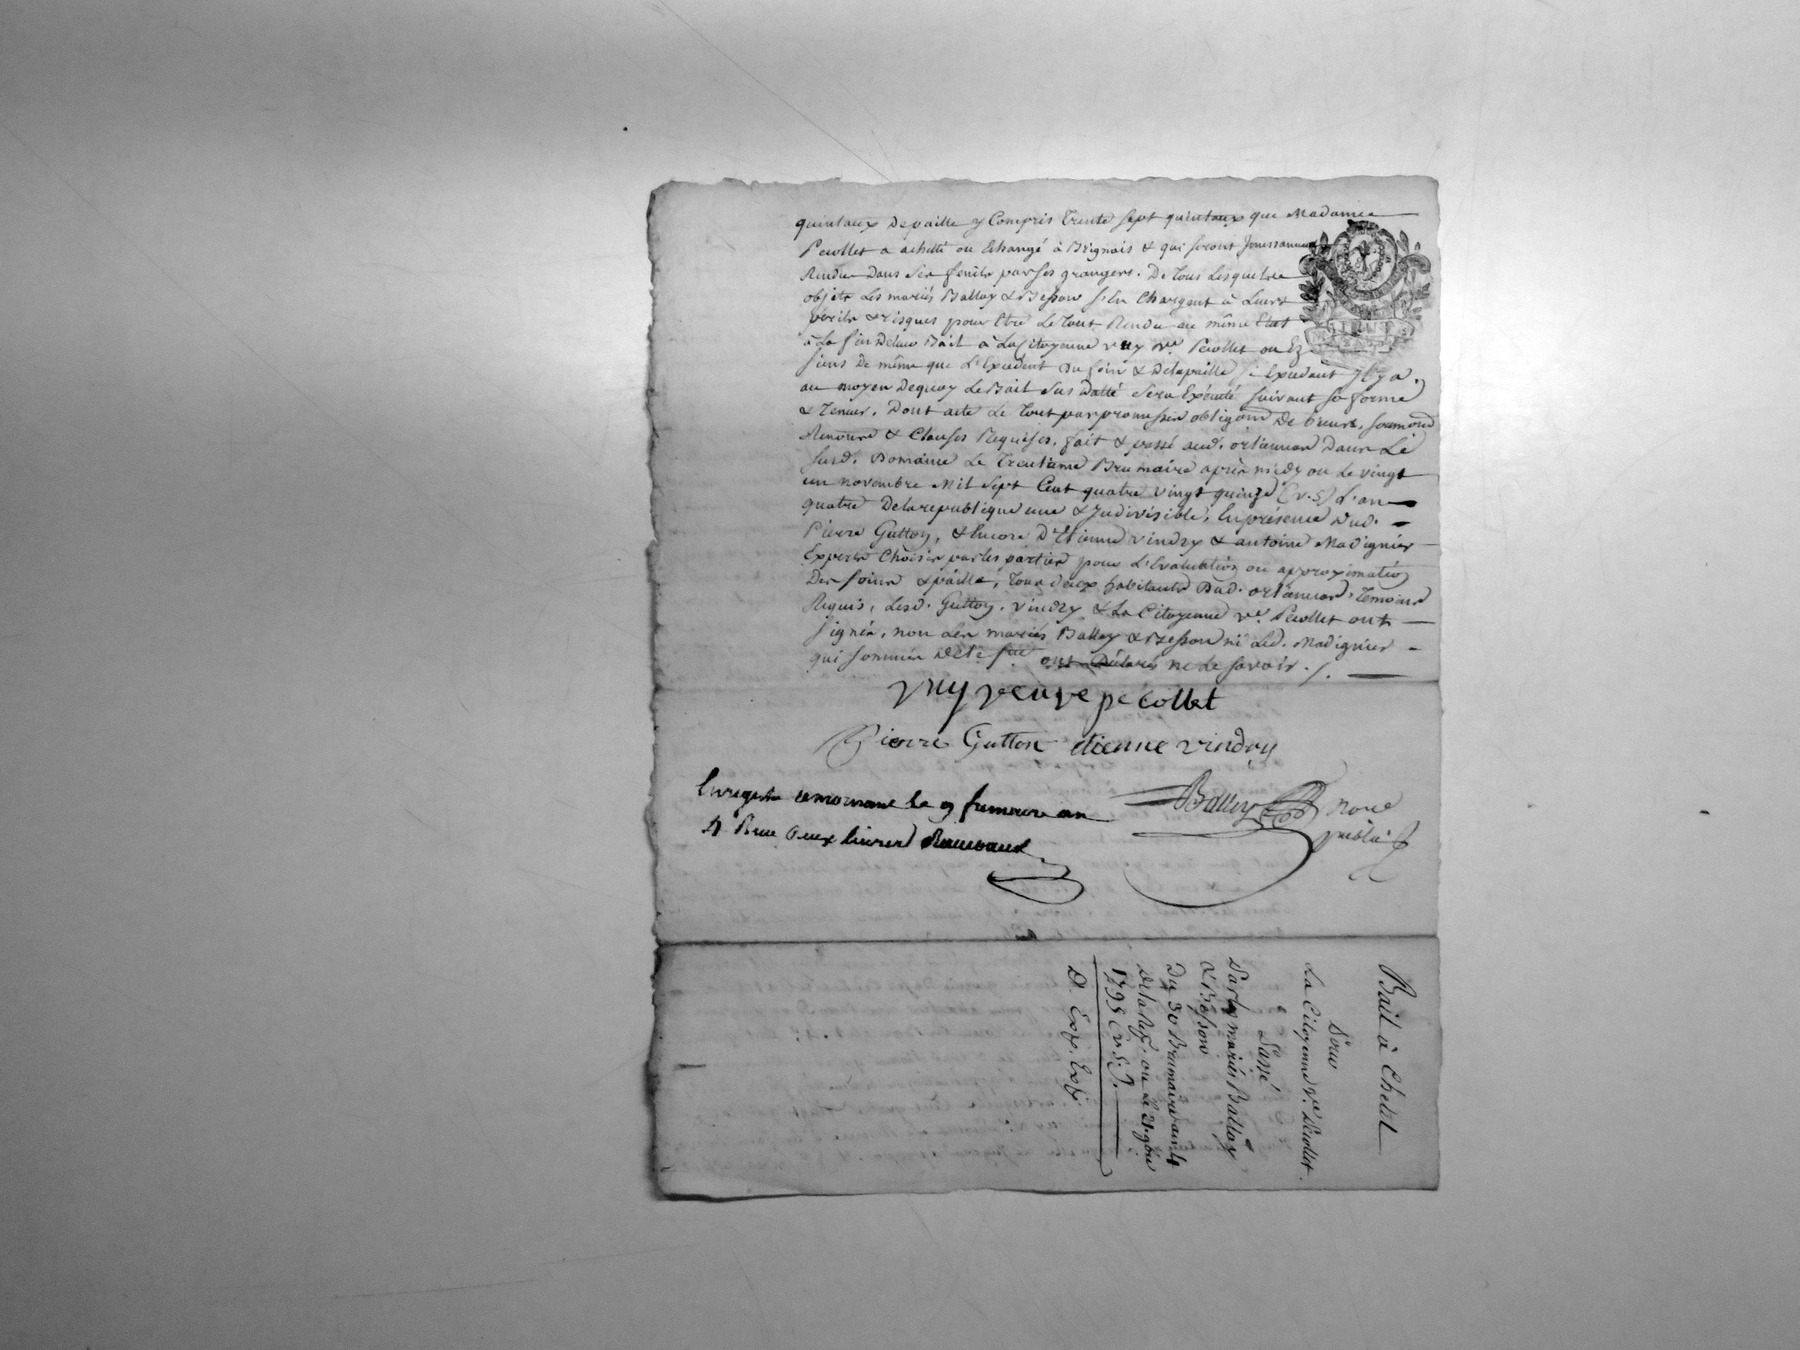 quintaux De paille y Compris Trente Sept quintaux que Madame
Pecollet a achetté ou Echangé à Brignais & qui seront
Rendu Dans Ses fenils par Ses grangers. De Tous Lesquels
objets Les mariés Balley & Besson S'En Chargent à Leurs
périls & risques pour Etre Le Tout Rendu au même Etat
à La fin De leur Bail à La Citoyenne vuy Ve. Pecollet ou
Siens De même que L'Excedent Du foin & De la paille Si Excedant il y a,
au moyen De quoy Le Bail Sus Datté Sera Exécuté Suivant Sa forme
& Teneur. Dont acte Le Tout par promesses obligaon De biens, Soumons
Renonce & Clauses Requises, fait & passé aud. orliennas Dans Le
Susd. Domaine Le Trentième Brumaire après midy ou Le vingt
un novembre Mil Sept Cent quatre vingt quinze (v.S.) L'an
quatre De la republique une & Indivisible, En présence Dud.
Pierre Gutton, & Encore D'Etienne vindry & antoine Madignier
Experts Choisis par Les parties pour L'Evaluation ou approximation
Des foins & paille, Tous deux habitants Dud. orliennas, Temoins
Requis, Lesd. Gutton, vindry & La Citoyenne Ve. Pecollet ont
Signés, non Les mariés Balley & Besson ni Led. Madignier
qui Sommés De Le fre. ont Déclarés ne Le Savoir ./.
vuy veuve pecollet
Pierre Gutton etienne vindry
Enregistre a mornant le 9 frimaire an
4 Recu deux livres
Balley Nore
publi
Bail à Chetel
Pour
La Citoyenne Ve. Pecollet
Passé
Par Les mariés Balley
& Besson
Du 30 Brumaire an 4
De la Rep. ou Le 21 9bre
1795 (v.S.)